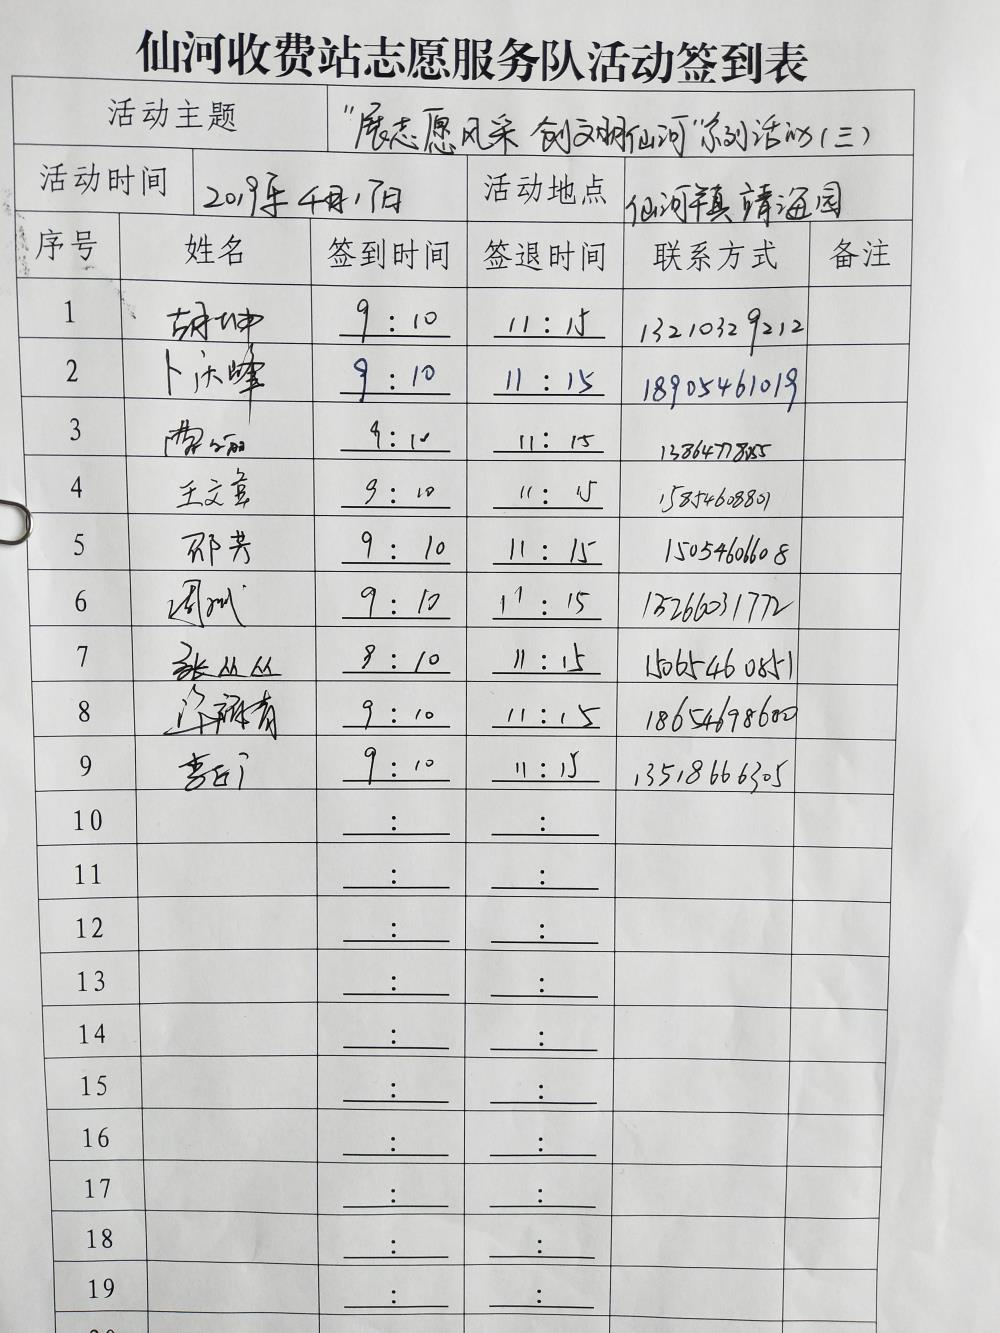 仙河收费站志愿服务队活动签到表
活动主题 "展志愿风采 创文明仙河"系列活动(三)
活动时间 2019年4月17日 活动地点 仙河镇靖海园
序号 姓名 签到时间 签退时间 联系方式 备注
1 胡坤 9:10 11:15 13210329212
2 卜庆峰 9:10 11:15 18905461019
3 9:10 11:15
4 王文 9:10 11:15 15854608801
5 邵芳 9:10 11:15 15054606608
6 周斌 9:10 11:15 15266031772
7 张丛丛 9:10 11:15 15065460851
8 9:10 11:15 18654698600
9 李 9:10 11:15 13518666305
10 : :
11 : :
12 : :
13 : :
14 : :
15 : :
16 : :
17 : :
18 : :
19 : :